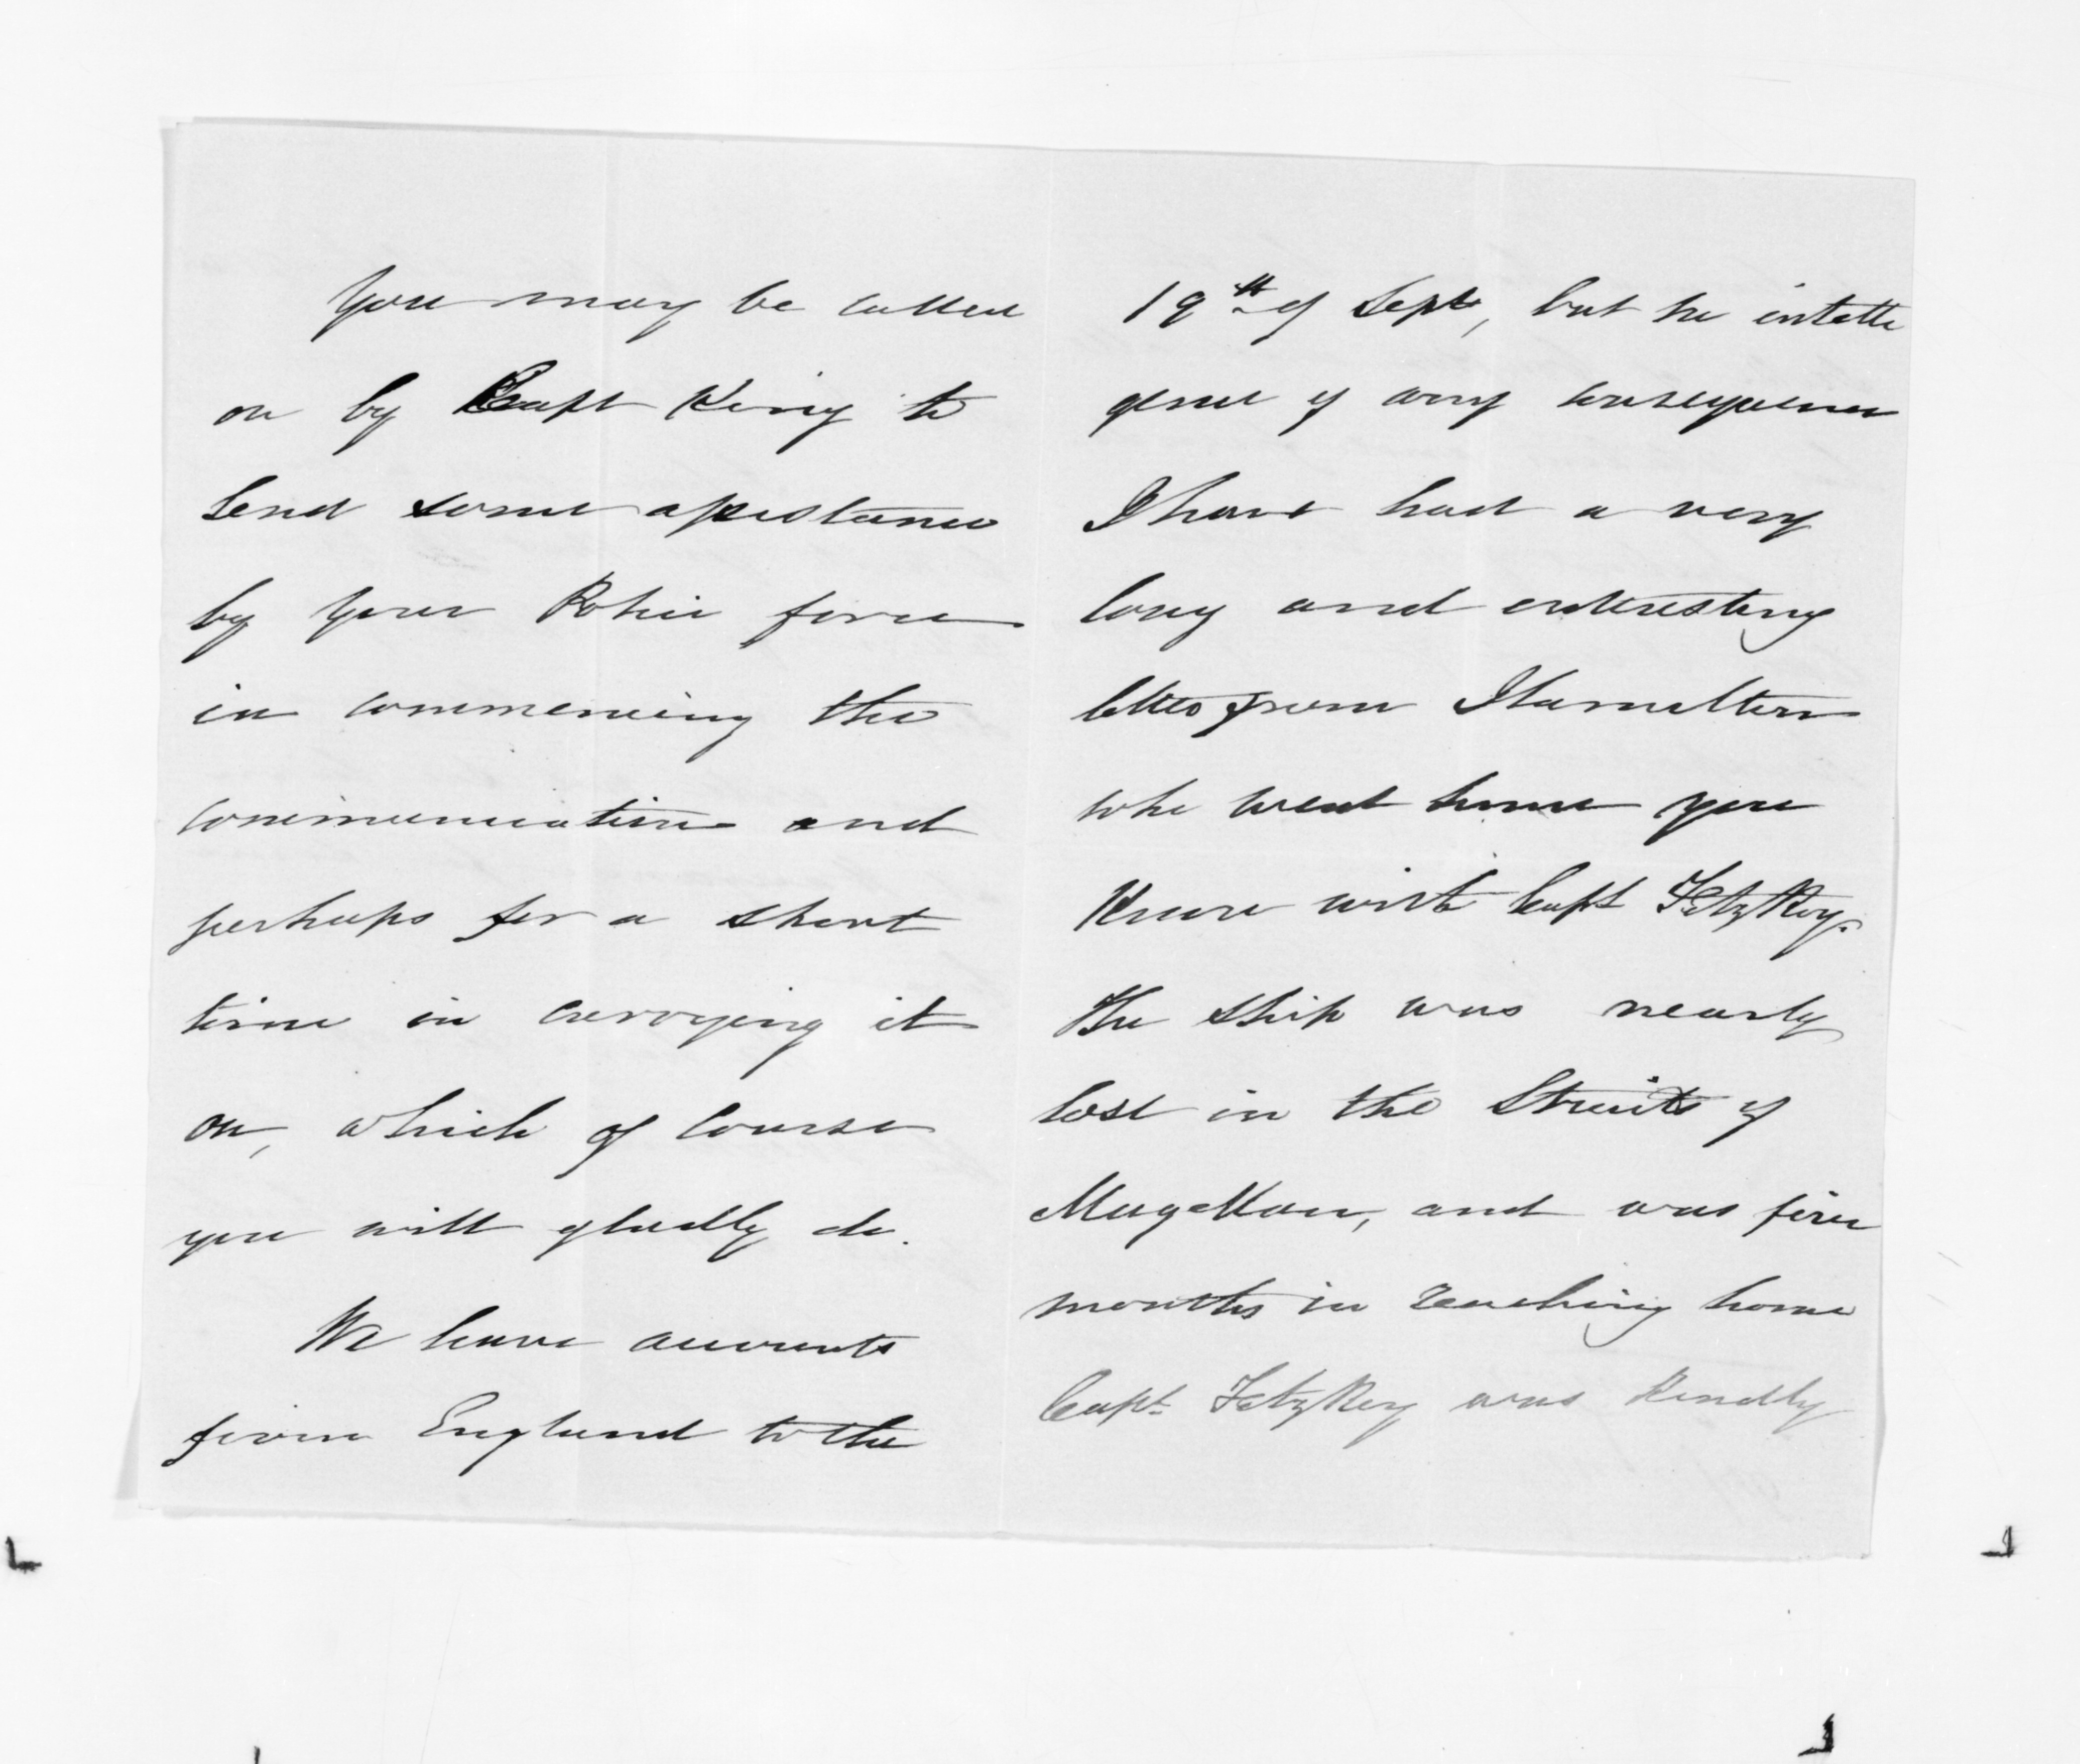 You may be called
on by Capt King to
lend some assistance
by your Police force
in commencing the
communication and
perhaps for a short
time in carrying it
on, which of course
you will gladly do.
We have accounts
from England to the
19th of Sept, but no intelli
gence of any consequence
I have had a very
long and interesting
letter from Hamilton
who went home you
know with Capt FitzRoy.
The ship was nearly
lost in the Straits of
Magellan, and was five
months in reaching home
Capt. FitzRoy was kindly